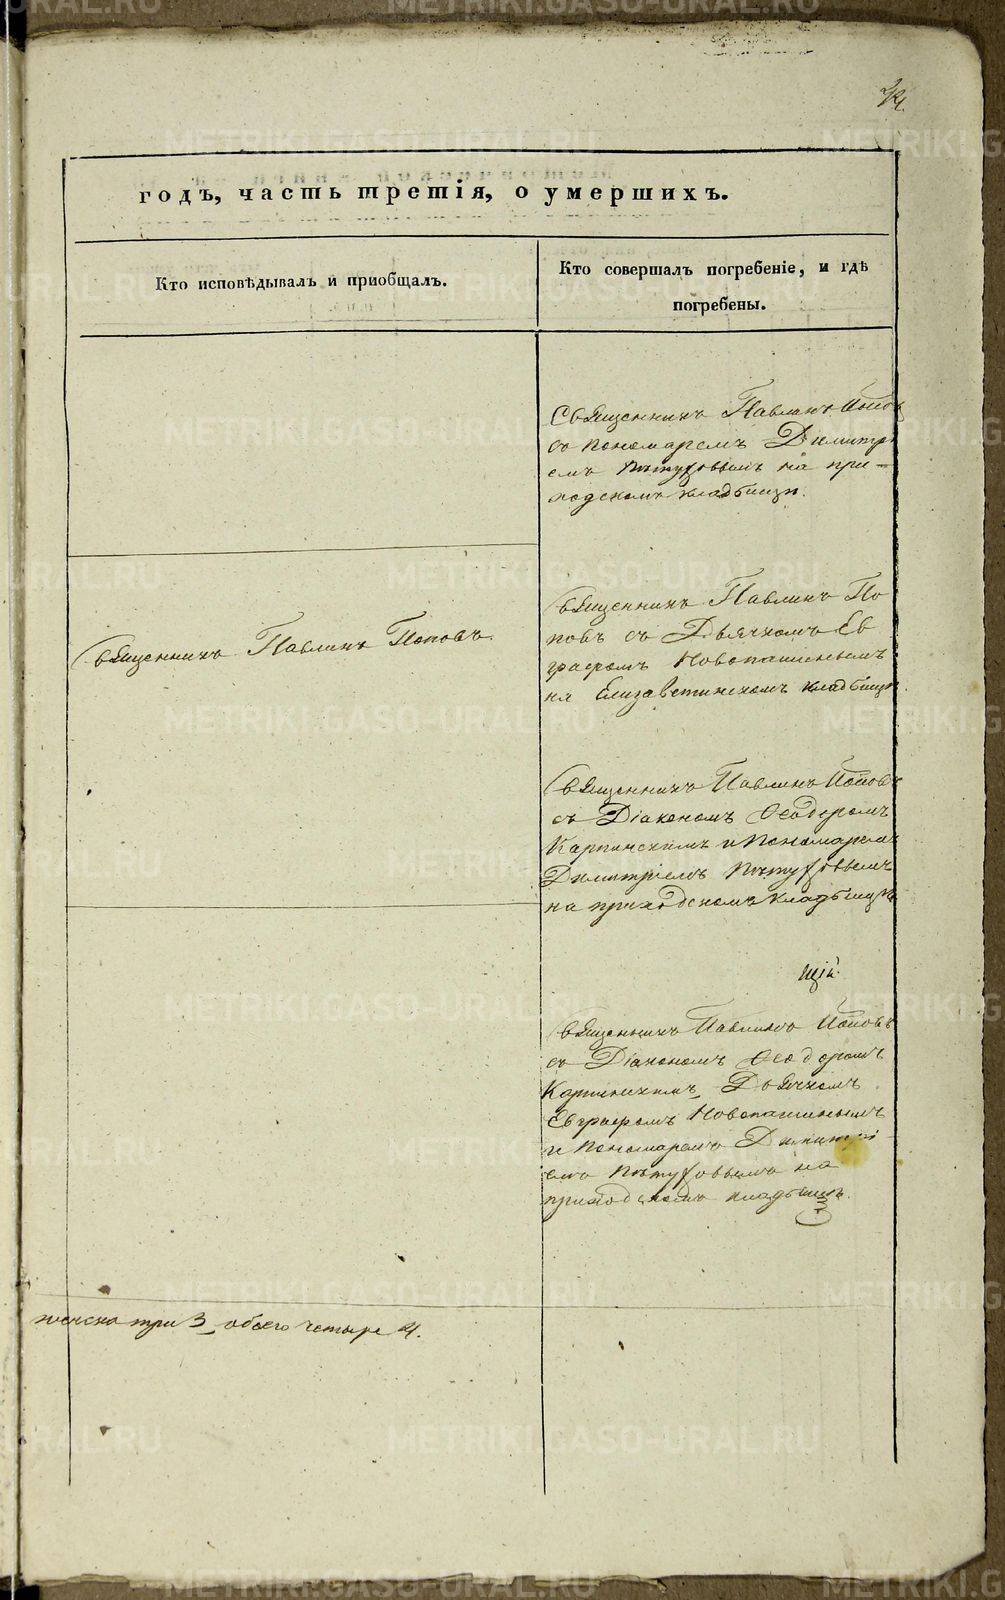 годъ, часть третія, о умершихъ.
Кто исповѣдывалъ и приобщалъ.
Кто совершалъ погребеніе, и гдѣ
погребены.
Священникъ Павлинъ Попов
со пономаремъ Димитрі
емъ на при-
ходскомъ кладбищѣ.
Священникъ Павлинъ Поповъ
Священникъ Павлинъ По
повъ съ Дьячкомъ Ев
графомъ Новопашеннымъ
на Елизаветинскомъ кладбищѣ.
Священникъ Павлинъ Поповъ
съ Діакономъ Ѳеодоромъ
Карпинскимъ и Пономаремъ
Димитріемъ
на приходскомъ кладбищѣ
щій
Священникъ Павлинъ Поповъ
съ Діакономъ Ѳеодоромъ
Карпинскимъ, Дьячкомъ
Евграфомъ Новопашеннымъ
и Пономаремъ Димитрі
емъ на
приходскомъ кладбищѣ.
женска три 3, обоего четыре 4.
METRIKI.GASO-URAL.RU